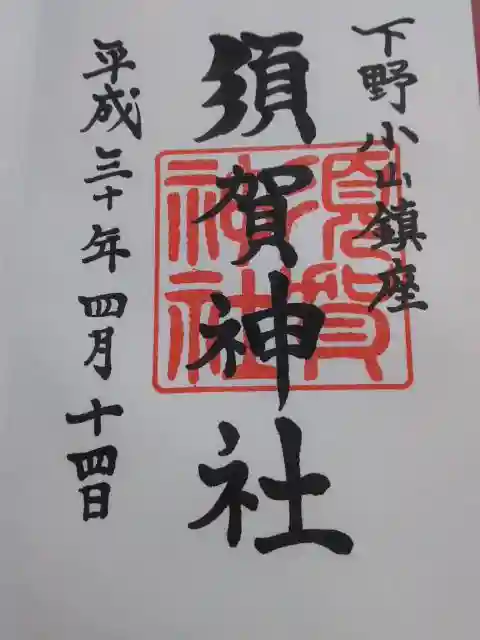 下野小山鎮座
須賀神社
須賀神社
平成三十年四月十四日